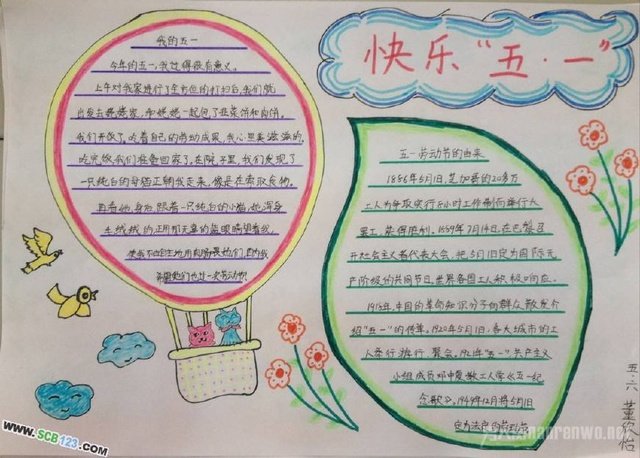 快乐“五·一”
我的五一
今年的五一,我过得很有意义。
上午对我家进行了全方位的打扫后,我们就
出发去姥姥家,和姥姥一起包了韭菜饼和肉饼。
我们开饭了。吃着自己的劳动成果,我心里美滋滋的。
吃完饭,我们准备回家了。在院子里,我们发现了
一只纯白的母猫正朝我走来,像是在索取食物。
且看她身后,跟着一只纯白的小猫,她浑身
毛绒绒的,正用那无辜的蓝眼睛望着我,
五一劳动节的由来
1886年5月1日,芝加哥的20多万
工人为争取实行8小时工作制而举行大
罢工,获得胜利。1889年7月14日,在巴黎召
开社会主义者代表大会,把5月1日定为国际无
产阶级的共同节日,世界各国工人积极响应。
1918年,中国的革命知识分子向群众散发介
绍“五一”的传单。1920年5月1日,各大城市的工
人举行游行、聚会。1921年“五一”,共产主义
小组成员邓中夏教工人学长五一纪
念歌》。1949年12月将5月1日
定为法定的劳动节
五·六
董
www.SCB123.com